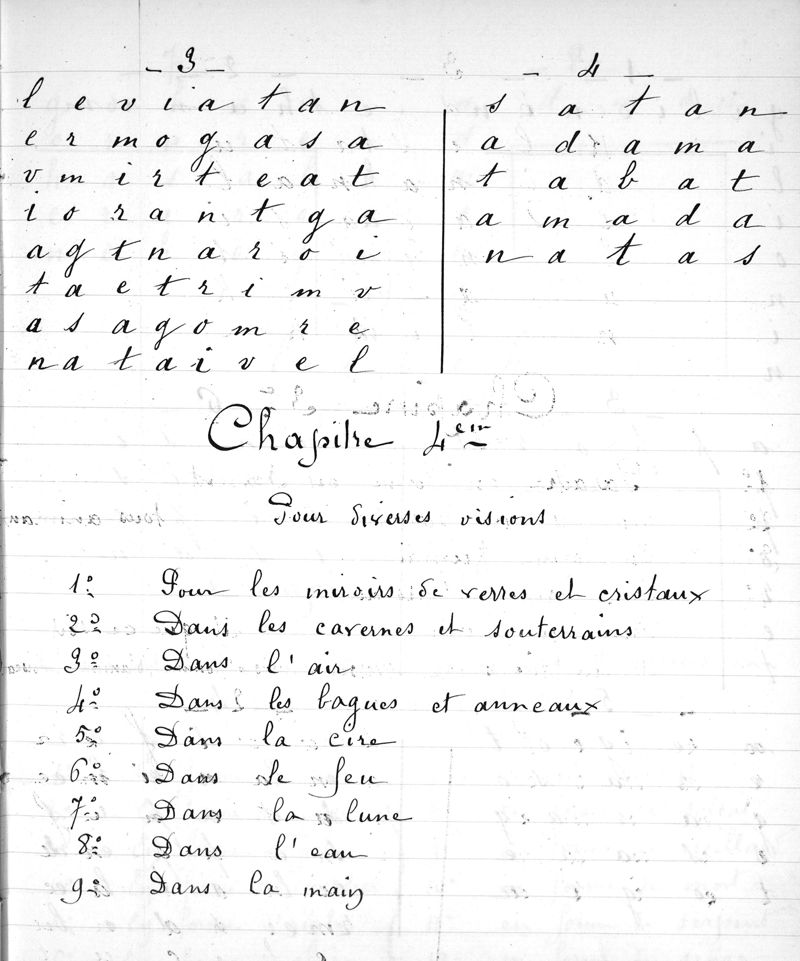 - 3 -
l e v i a t a n
e r m o g a s a
v m i r t e a t
i o r a n t g a
a g t n a r o i
t a e t r i m v
a s a g o m r e
n a t a i v e l
- 4 -
s a t a n
a d a m a
t a b a t
a m a d a
n a t a s
Chapitre 4em
Pour diverses visions
1o Pour les miroirs de verres et cristaux
2o Dans les cavernes et souterrains
3o Dans l'air
4o Dans les bagues et anneaux
5o Dans la cire
6o Dans le feu
7o Dans la lune
8o Dans l'eau
9o Dans la main